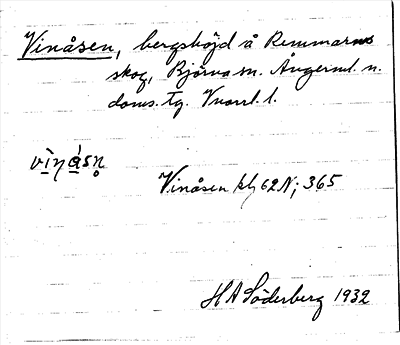 Vinåsen, bergshöjd å Remmarns
skog, Björna sn. Ångerml. n.
doms. tg. Vnorrl. l.
vìnásn̥
Vinåsen kbl 62 N; 365
H A Söderberg 1932